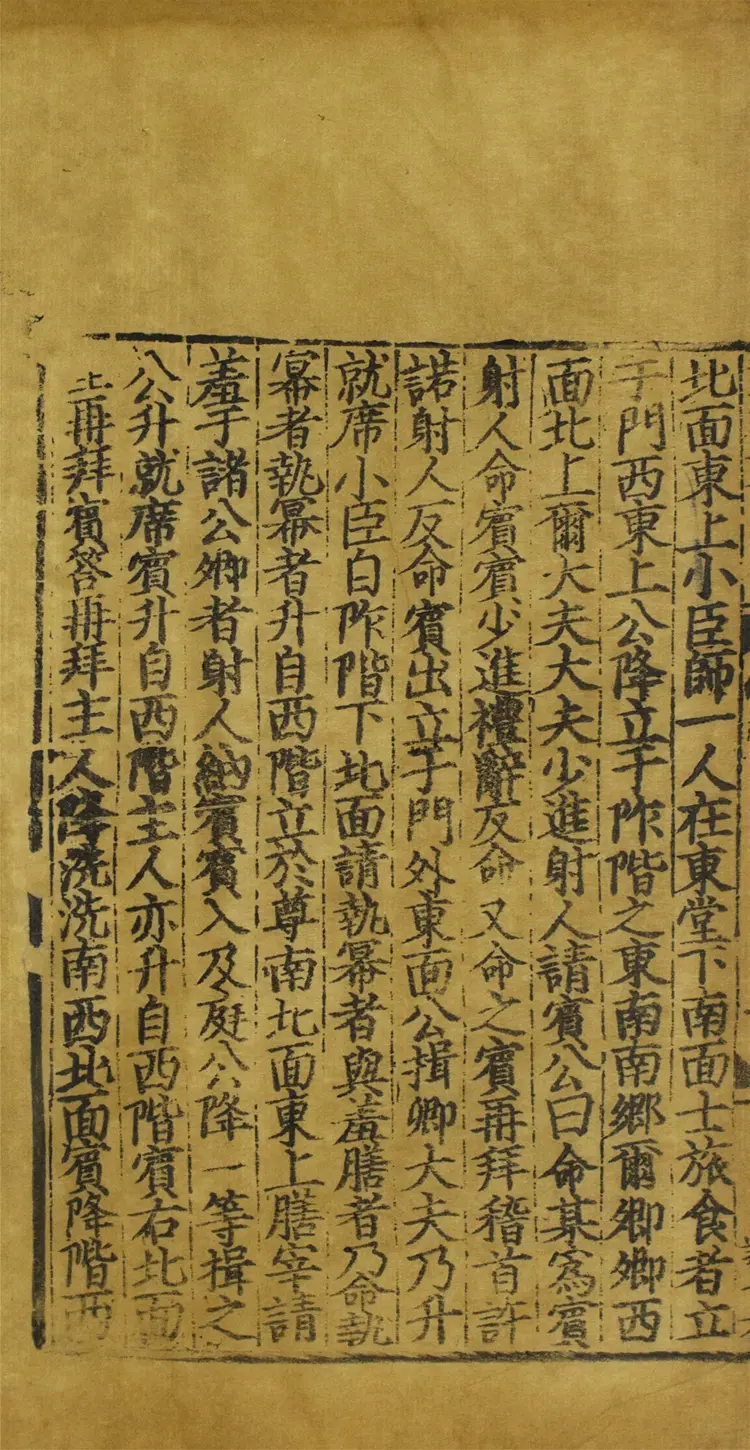 北面東上小臣師一人在東堂下南面士旅食者立
于門西東上公降立于阼階之東南南鄉爾卿卿西
面北上爾大夫大夫少進射人請賓公曰命某爲賓
射人命賓賓少進禮辭反命又命之賓再拜稽首許
諾射人反命賓出立于門外東面公揖卿大夫乃升
就席小臣自阼階下北面請執冪者與羞膳者乃命執
冪者執冪者升自西階立於尊南北面東上膳宰請
羞于諸公卿者射人納賓賓入及庭公降一等揖之
公升就席賓升自西階主人亦升自西階賓右北面
至再拜賓答再拜主人降洗洗南西北面賓降階西